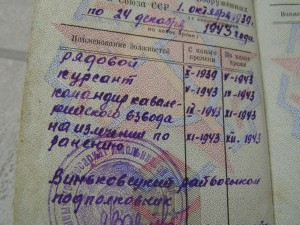 Союза ССР 1. октября 1939г.
по 24 декабря 1943 года
Наименование должностей С какого времени По какое время
рядовой X-1939 V-1943
курсант V-1943 IX-1943
командир кавале-
рийского взвода IX-1943 XI-1943
на излечении по XI-1943 XII-1943
ранению
Виньковецкий райвоенком
подполковник